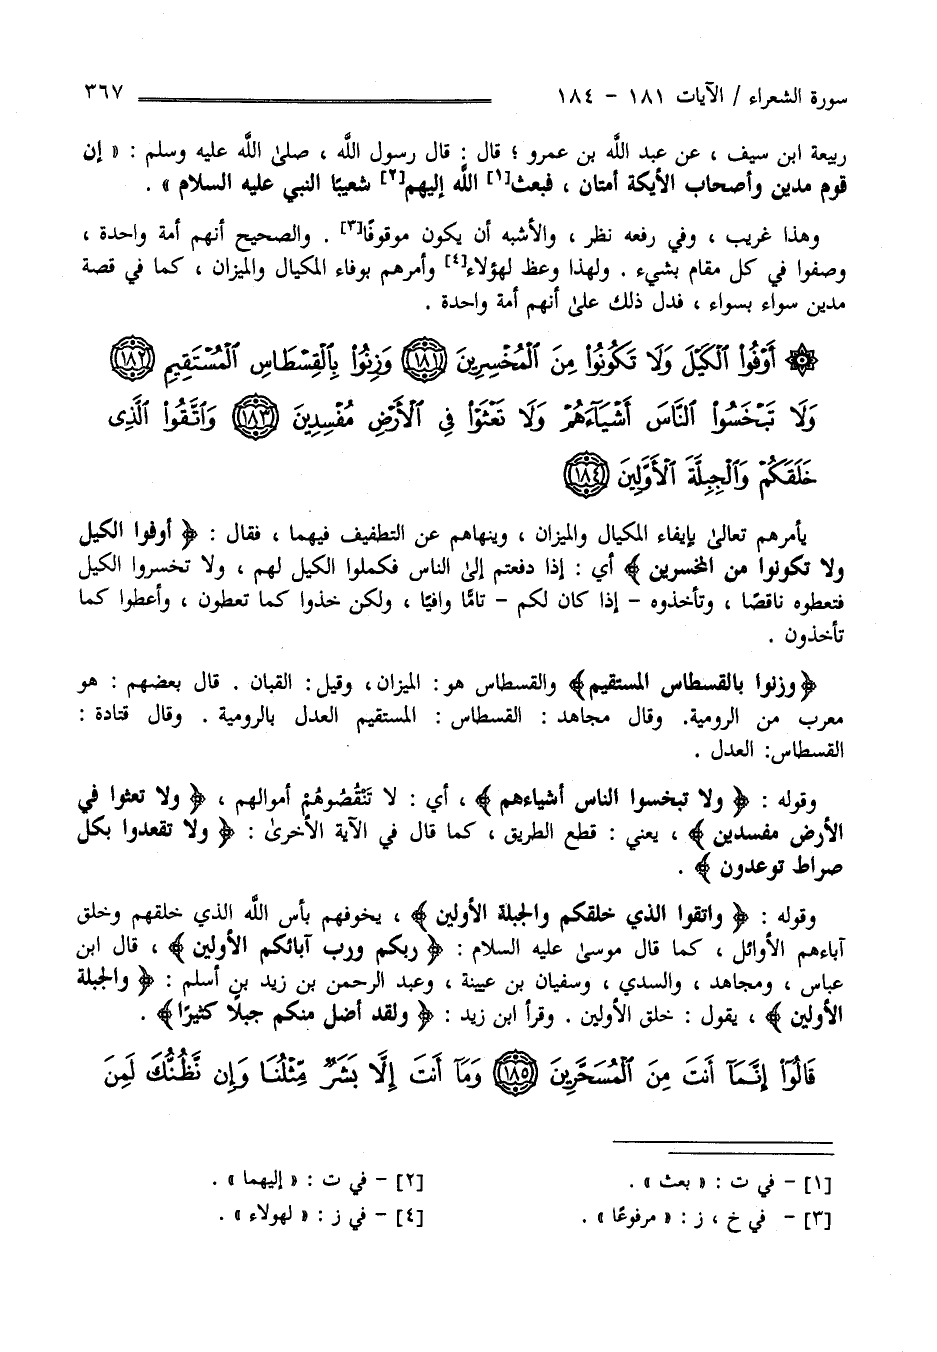 سورة الشعراء / الآيات ١٨١ - ١٨٤ ٣٦٧
ربيعة ابن سيف ، عن عبد اللَّه بن عمرو ؛ قال : قال رسول اللَّه ، صلىٰ اللَّه عليه وسلم : « إن
قوم مدين وأصحاب الأيكة أمتان ، فبعث[١] اللَّه إليهم[٢] شعيبًا النبي عليه السلام » .
وهذا غريب ، وفي رفعه نظر ، والأشبه أن يكون موقوفًا[٣] . والصحيح أنهم أمة واحدة ،
وصفوا في كل مقام بشيء . ولهذا وعظ لهؤلاء[٤] وأمرهم بوفاء المكيال والميزان ، كما في قصة
مدين سواء بسواء ، فدل ذلك علىٰ أنهم أمة واحدة .
۞ أَوْفُوا۟ ٱلْكَيْلَ وَلَا تَكُونُوا۟ مِنَ ٱلْمُخْسِرِينَ ١٨١ وَزِنُوا۟ بِٱلْقِسْطَاسِ ٱلْمُسْتَقِيمِ ١٨٢
وَلَا تَبْخَسُوا۟ ٱلنَّاسَ أَشْيَآءَهُمْ وَلَا تَعْثَوْا۟ فِى ٱلْأَرْضِ مُفْسِدِينَ ١٨٣ وَٱتَّقُوا۟ ٱلَّذِى
خَلَقَكُمْ وَٱلْجِبِلَّةَ ٱلْأَوَّلِينَ ١٨٤
يأمرهم تعالىٰ بإيفاء المكيال والميزان ، وينهاهم عن التطفيف فيهما ، فقال : ﴿ أوفوا الكيل
ولا تكونوا من المخسرين ﴾ أي : إذا دفعتم إلىٰ الناس فكملوا الكيل لهم ، ولا تخسروا الكيل
فتعطوه ناقصًا ، وتأخذوه - إذا كان لكم - تامًّا وافيًا ، ولكن خذوا كما تعطون ، وأعطوا كما
تأخذون .
﴿وزنوا بالقسطاس المستقيم﴾ والقسطاس هو: الميزان، وقيل: القبان . قال بعضهم : هو
معرب من الرومية. وقال مجاهد : القسطاس : المستقيم العدل بالرومية . وقال قتادة :
القسطاس: العدل .
وقوله : ﴿ ولا تبخسوا الناس أشياءهم ﴾ ، أي : لا تَنْقُصُوهُمْ أموالهم ، ﴿ ولا تعثوا في
الأرض مفسدين ﴾ ، يعني : قطع الطريق ، كما قال في الآية الأخرىٰ : ﴿ ولا تقعدوا بكل
صراط توعدون ﴾ .
وقوله : ﴿ واتقوا الذي خلقكم والجبلة الأولين ﴾ ، يخوفهم بأس اللَّه الذي خلقهم وخلق
آباءهم الأوائل ، كما قال موسىٰ عليه السلام : ﴿ ربكم ورب آبائكم الأولين ﴾ ، قال ابن
عباس ، ومجاهد ، والسدي ، وسفيان بن عيينة ، وعبد الرحمن بن زيد بن أسلم : ﴿ والجبلة
الأولين ﴾ ، يقول : خلق الأولين . وقرأ ابن زيد : ﴿ ولقد أضل منكم جبلًا كثيرًا ﴾ .
قَالُوٓا۟ إِنَّمَآ أَنتَ مِنَ ٱلْمُسَحَّرِينَ ١٨٥ وَمَآ أَنتَ إِلَّا بَشَرٌ مِّثْلُنَا وَإِن نَّظُنُّكَ لَمِنَ
[١] - في ت : « بعث » . [٢] - في ت : « إليهما » .
[٣] - في خ ، ز : « مرفوعًا » . [٤] - في ز : « لهولاء » .